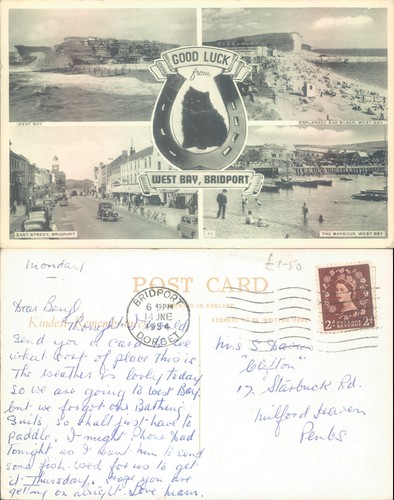 GOOD LUCK
from
WEST BAY, BRIDPORT
WEST BAY
ESPLANADE AND BEACH, WEST BAY
EAST STREET, BRIDPORT
THE HARBOUR, WEST BAY
Monday
£1-50
POST CARD
BRIDPORT
6 PM
14 JNE
1954
DORSET
2d
2d
Kindest Remembrances
Dear Beryl,
Thought I would
send you a card to see
what sort of place this is
The weather is lovely today
so we are going to West Bay
but we forgot our Bathing
Suits, so shall just have to
paddle. I might phone Dad
tonight as I want him to send
some fish wed for us to get
it Thursday. Hope you are
getting on alright love mam.
Mrs S
"Clifton"
17 Starbuck Rd.
Milford Haven
Pembs